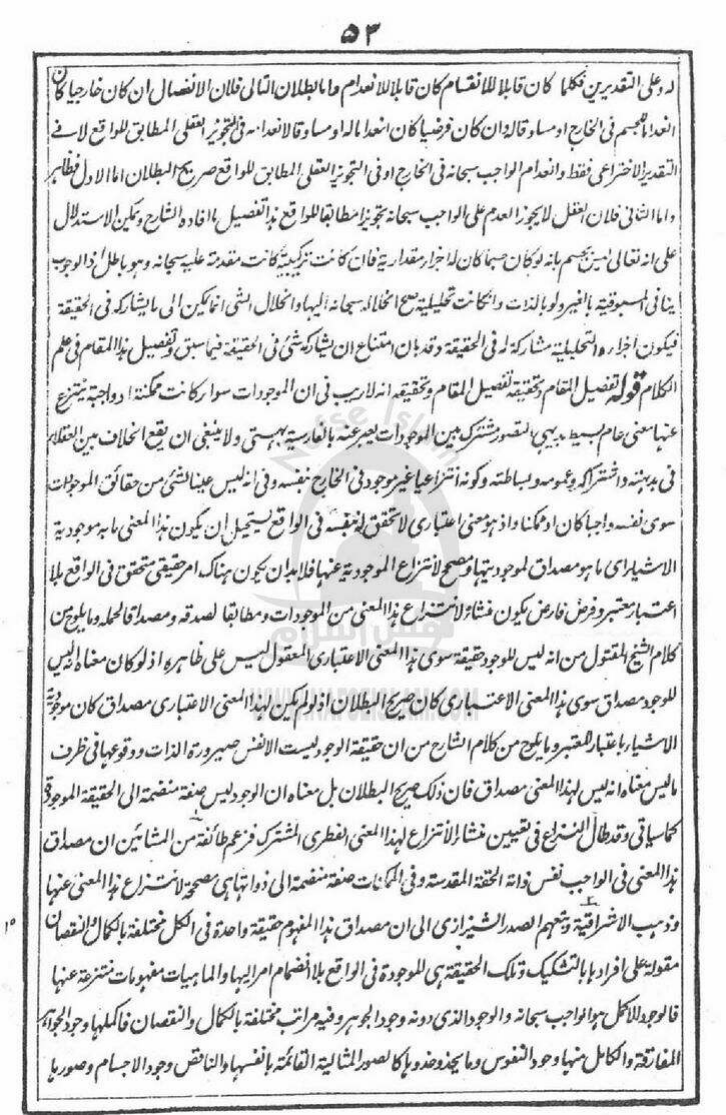 ٥٣
له وعلى التقديرين فكلما كان قابلا للانقسام كان قابلا للانعدام واما بطلان التالى فلان الانفصال ان كان خارجيا كان
انعداما للجسم فى الخارج او مساوقا له وان كان فرضيا كان انعداما له او مساوقا لانعدامه فى التجويز العقلى المطابق للواقع لا فى
التقدير الاختراعى فقط وانعدام الواجب سبحانه فى الخارج او فى التجويز العقلى المطابق للواقع صريح البطلان اما الاول فظاهر
واما الثانى فلان العقل لا يجوز العدم على الواجب سبحانه تجويزا مطابقا للواقع هذا تفصيل ما افاده الشارح ويمكن الاستدلال
على انه تعالى ليس بجسم بانه لو كان جسما كان له اجزاء مقدارية فان كانت تركيبية كانت مقدمة عليه سبحانه وهو باطل اذ الوجوب
ينافى المسبوقية بالغير ولو بالذات وان كانت تحليلية صح انحلاله سبحانه اليها وانحلال الشئ انما يمكن الى ما يشاركه فى الحقيقة
فيكون اجزاءه التحليلية مشاركة له فى الحقيقة وقد بان امتناع ان يشاركه شئ فى الحقيقة فيما سبق وتفصيل هذا المقام فى علم
الكلام قوله تفصيل المقام وتحقيقه تفصيل المقام وتحقيقه انه لا ريب فى ان الموجودات سواء كانت ممكنة او واجبة ينتزع
عنها معنى عام بسيط بديهى التصور مشترك بين الموجودات يعبر عنه بالفارسية بهستى ولا ينبغى ان يقع الخلاف بين العقلاء
فى بديهته واشتراكه وعمومه وبساطته وكونه انتزاعيا غير موجود فى الخارج بنفسه وفى انه ليس عينا لشئ من حقائق الموجودات
سوى نفسه واجبا كان او ممكنا واذ هو معنى اعتبارى لا تحقق له بنفسه فى الواقع يستحيل ان يكون هذا المعنى ما به موجودية
الاشياء اى ما هو مصداق لموجوديتها ومصحح لانتزاع الموجودية عنها فلا بد ان يكون هناك امر حقيقى متحقق فى الواقع بلا
اعتبار معتبر وفرض فارض يكون منشاء لانتزاع هذا المعنى من الموجودات ومطابقا لصدقه ومصداقا لحمله وما يلوح من
كلام الشيخ المقتول من انه ليس للوجود حقيقة سوى هذا المعنى الاعتبارى المعقول ليس على ظاهره اذ لو كان معناه انه ليس
للوجود مصداق سوى هذا المعنى الاعتبارى كان صريح البطلان اذ لو لم يكن لهذا المعنى الاعتبارى مصداق كان موجودية
الاشياء باعتبار المعتبر وما يلوح من كلام الشارح من ان حقيقة الوجود ليست الا نفس صيرورة الذات ووقوعها فى ظرف
ما ليس معناه انه ليس لهذا المعنى مصداق فان ذلك صريح البطلان بل معناه ان الوجود ليس صفة منضمة الى الحقيقة الموجودة
كما سياتى وقد طال النزاع فى تعيين منشاء الانتزاع لهذا المعنى الفطرى المشترك فزعم طائفة من المشائين ان مصداق
هذا المعنى فى الواجب نفس ذاته الحقة المقدسة وفى الممكنات صفة منضمة الى ذواتها هى مصححة لانتزاع هذا المعنى عنها
وذهب الاشراقية وتبعهم الصدر الشيرازى الى ان مصداق هذا المفهوم حقيقة واحدة فى الكل مختلفة بالكمال والنقصان
مقولة على افرادها بالتشكيك وتلك الحقيقة هى الموجودة فى الواقع بلا انضمام امر اليها والماهيات مفهومات منتزعة عنها
فالوجود الاكمل هو الواجب سبحانه والوجود الذى دونه وجود الجوهر وفيه مراتب مختلفة بالكمال والنقصان فاكملها وجود الجواهر
المفارقة والكامل منها وجود النفوس وما يحذو حذوها كالصور المثالية القائمة بانفسها والناقص وجود الاجسام وصورها
Nafse Islam
نفس اسلام
WWW.NAFSEISLAM.COM